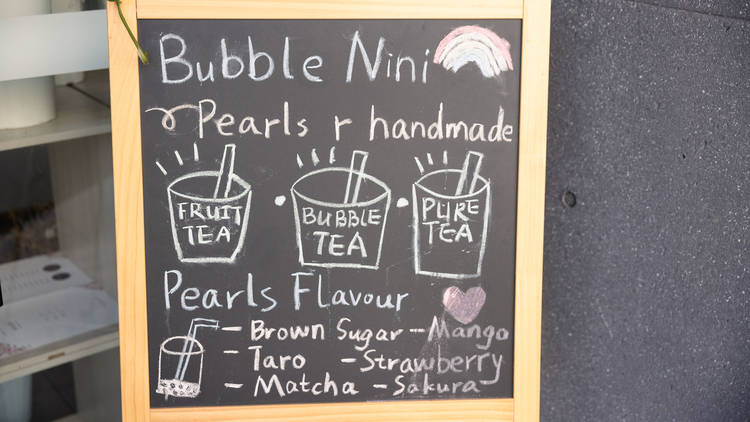 Bubble Nini
Pearls r handmade
FRUIT
TEA
BUBBLE
TEA
PURE
TEA
Pearls Flavour
- Brown Sugar - Mango
- Taro - Strawberry
- Matcha - Sakura